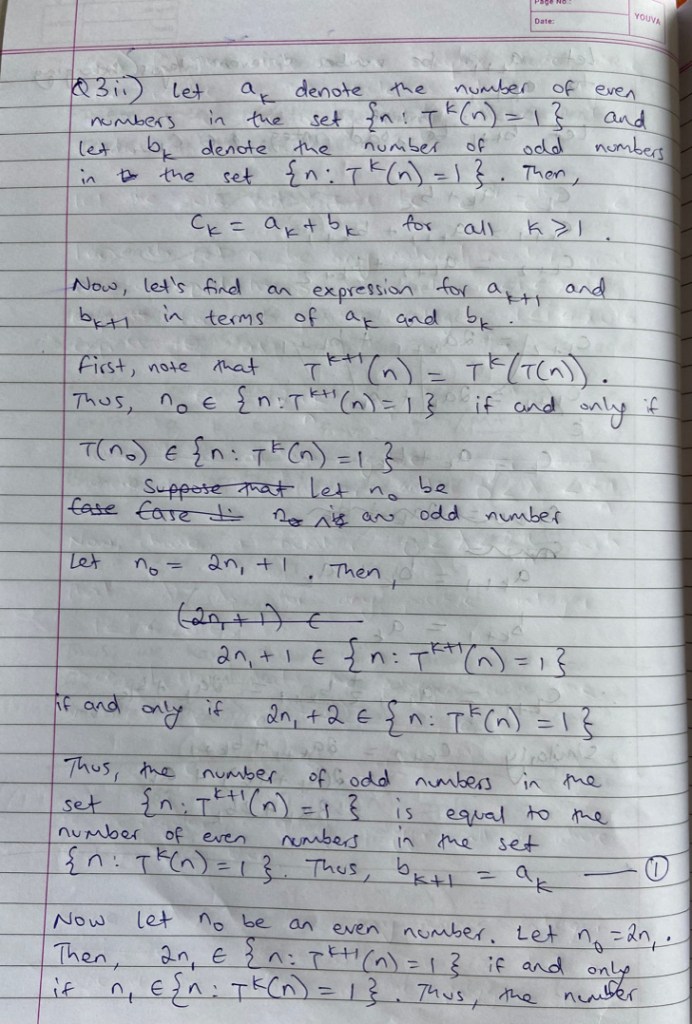 Page No.:
Date:
YOUVA
Q3ii) Let a_k denote the number of even
numbers in the set {n: T^k(n) = 1} and
let b_k denote the number of odd numbers
in the set {n: T^k(n) = 1}. Then,
c_k = a_k + b_k for all k ≥ 1.
Now, let's find an expression for a_{k+1} and
b_{k+1} in terms of a_k and b_k.
First, note that T^{k+1}(n) = T^k(T(n)).
Thus, n_0 ∈ {n: T^{k+1}(n) = 1} if and only if
T(n_0) ∈ {n: T^k(n) = 1}
Suppose that Let n_0 be
Case Case 1: n_0 is an odd number
Let n_0 = 2n_1 + 1. Then,
(2n_1 + 1) ∈
2n_1 + 1 ∈ {n: T^{k+1}(n) = 1}
if and only if 2n_1 + 2 ∈ {n: T^k(n) = 1}
Thus, the number of odd numbers in the
set {n: T^{k+1}(n) = 1} is equal to the
number of even numbers in the set
{n: T^k(n) = 1}. Thus, b_{k+1} = a_k — ①
Now let n_0 be an even number. Let n_0 = 2n_1.
Then, 2n_1 ∈ {n: T^{k+1}(n) = 1} if and only
if n_1 ∈ {n: T^k(n) = 1}. Thus, the number